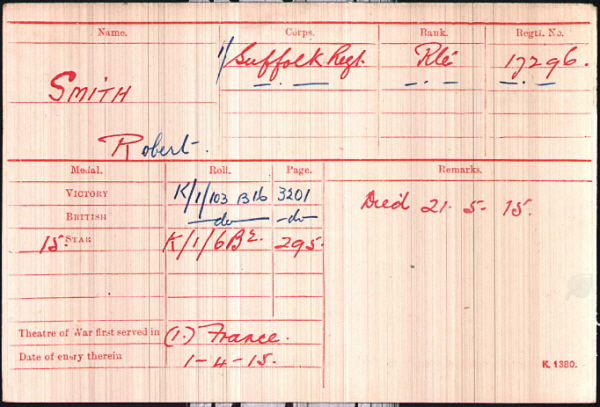 Name. Corps. Rank. Regtl. No.
1/ Suffolk Regt. Pte 17296.
SMITH
Robert.
Medal. Roll. Page. Remarks.
VICTORY K/1/103 B16 3201
Died 21. 5. 15.
BRITISH -do- -do-
15 STAR K/1/6 B2. 295.
Theatre of War first served in (1.) France.
Date of entry therein 1-4-15.
K. 1380.